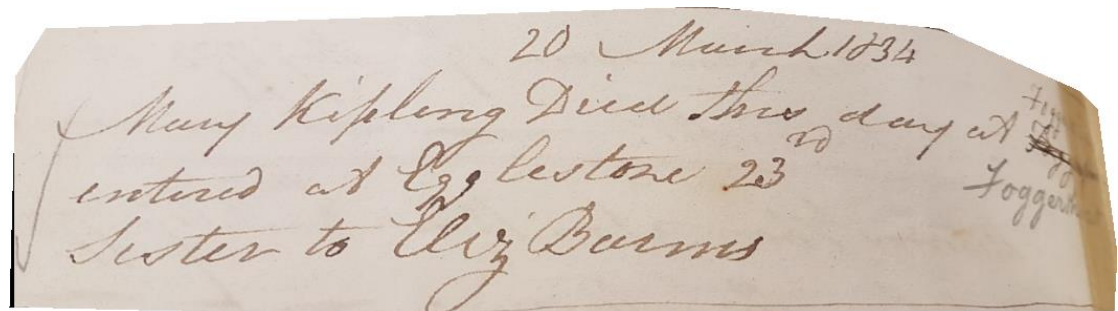 20 March 1834
Mary Kipling Died this day at
entered at Egglestone 23rd
Sister to Eliz Burns